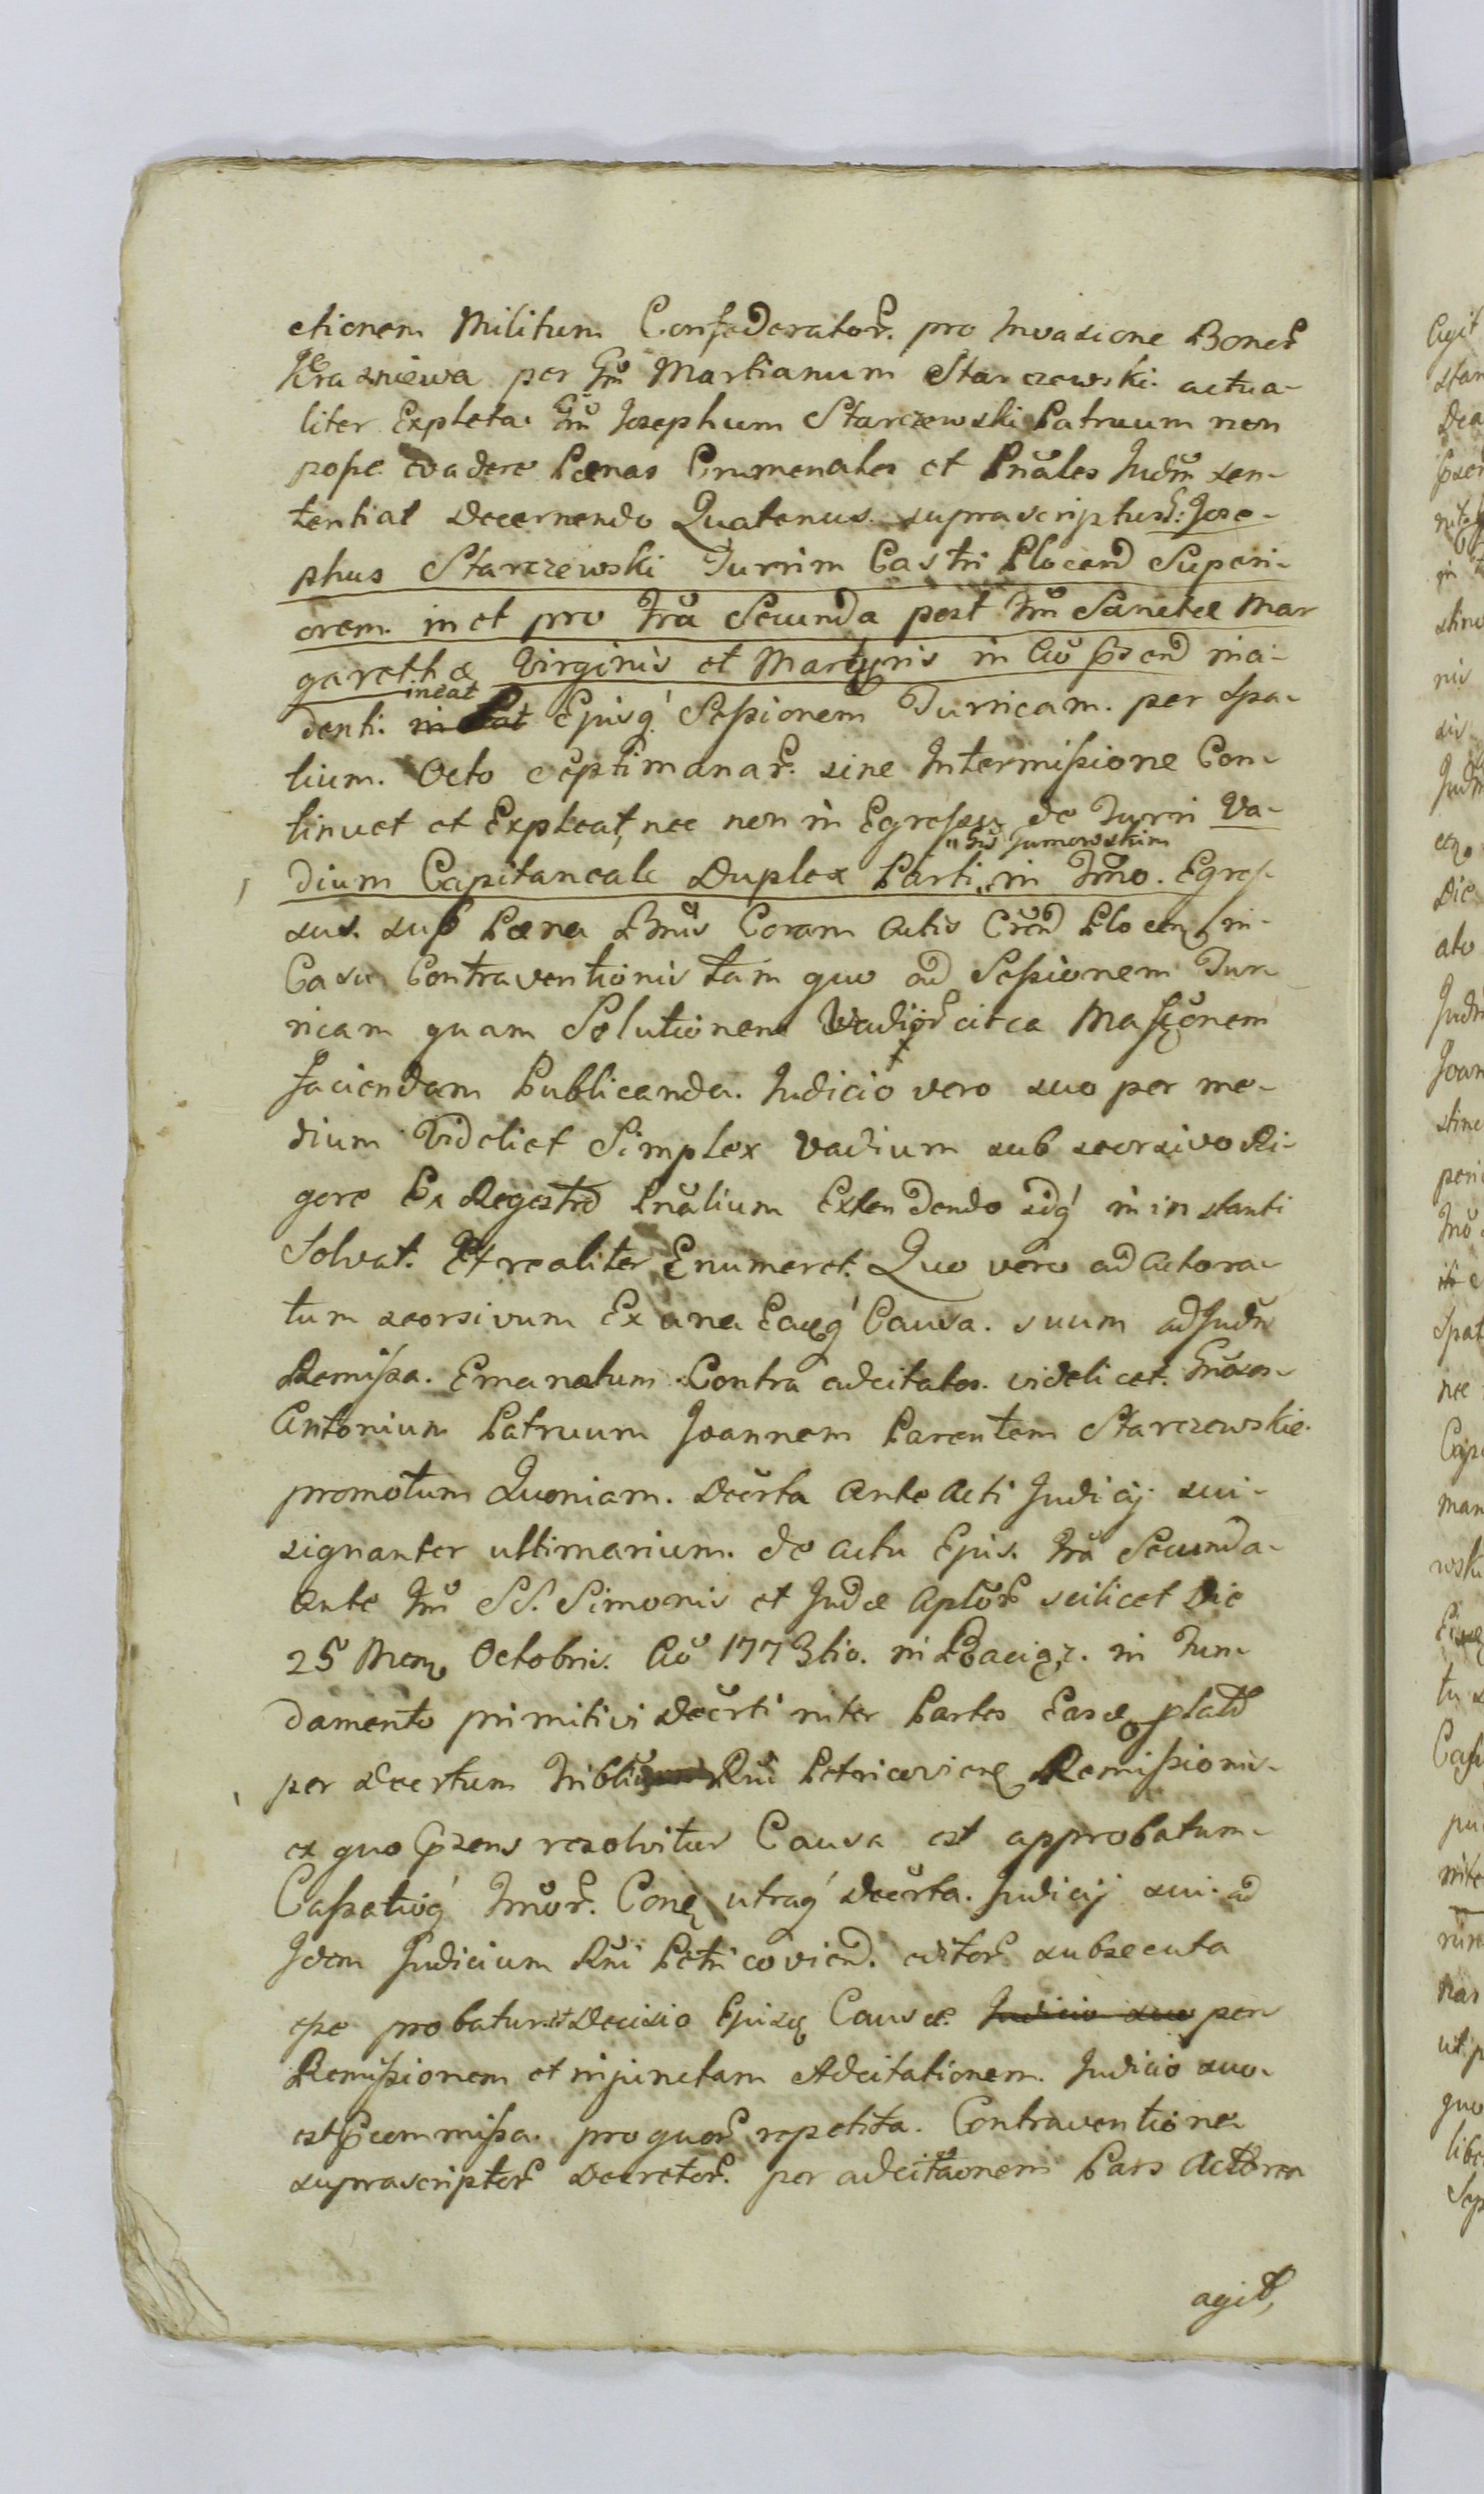 ctionem Militum Confæderator. pro Invasione Bonor
Krasniewa per Gm Martianum Starczewski actua-
liter Expleta. Gm Josephum Starczewski Patruum non
posse evadere Pœnas Criminales et Pnales Judm sen-
tentiat Decernendo Quatenus suprascriptus G: Jose-
phus Starczewski Turrim Castri Plocen Superi-
orem in et pro Fra Secunda post Fm Sanctæ Mar
garethæ Virginis et Martyris in Ao Psen inci-
denti ineat Ejusq Sessionem Turricam per Spa-
tium Octo Septimanar. sine Intermissione Con-
tinuet et Expleat, nec non in Egressu de Turri Va-
dium Capitaneale Duplex Parti "Gis Jumowskim in Tmo. Egres-
sus. sub Pœna Bnis Coram Actis Cren Plocen in
Casu Contraventionis tam quo ad Sessionem Tur-
ricam quam Solutionem Vadior circa
faciendam Publicanda. Judicio vero suo per me-
dium Videlicet Simplex Vadium sub seorsivo Ri-
gore Ex Regestro Pnalium Extendendo idq in instanti
Solvat. Et realiter Enumeret. Quo vero ad Actora-
tum seorsivum Ex una Eaeq Causa. suum ad Judm
Remissa. Emanatum Contra adcitatos. videlicet. Gnosos
Antonium Patruum Joannem Parentem Starczewskie
promotum Quoniam. Decrta Ante Acti Judicij sui
signanter ultimarium. de actu Ejus. Fra Secunda
Ante Fm SS. Simonis et Judæ Aplor scilicet Die
25 Mens Octobris. Ao 1773tio. in in Fun-
damento primitivi Decrti inter Partes Easd
per Decrtum Triblis Rni Petricovien Remissionis
ex quo Psens resolvitur Causa est approbatum
Cassatioq Tmor. Cond utraq Decrta. Judicij sui. ad
Idem Judicium Rni Petricovien. editor subsecuta
esse probatur. et Decisio Ejusd Causæ Judicio suo per
Remissionem et injunctam Adcitationem. Judicio suo
est commissa. pro quor repetita. Contraventione
suprascriptor Decretor. per adcitaonem Pars Actorea
agit,